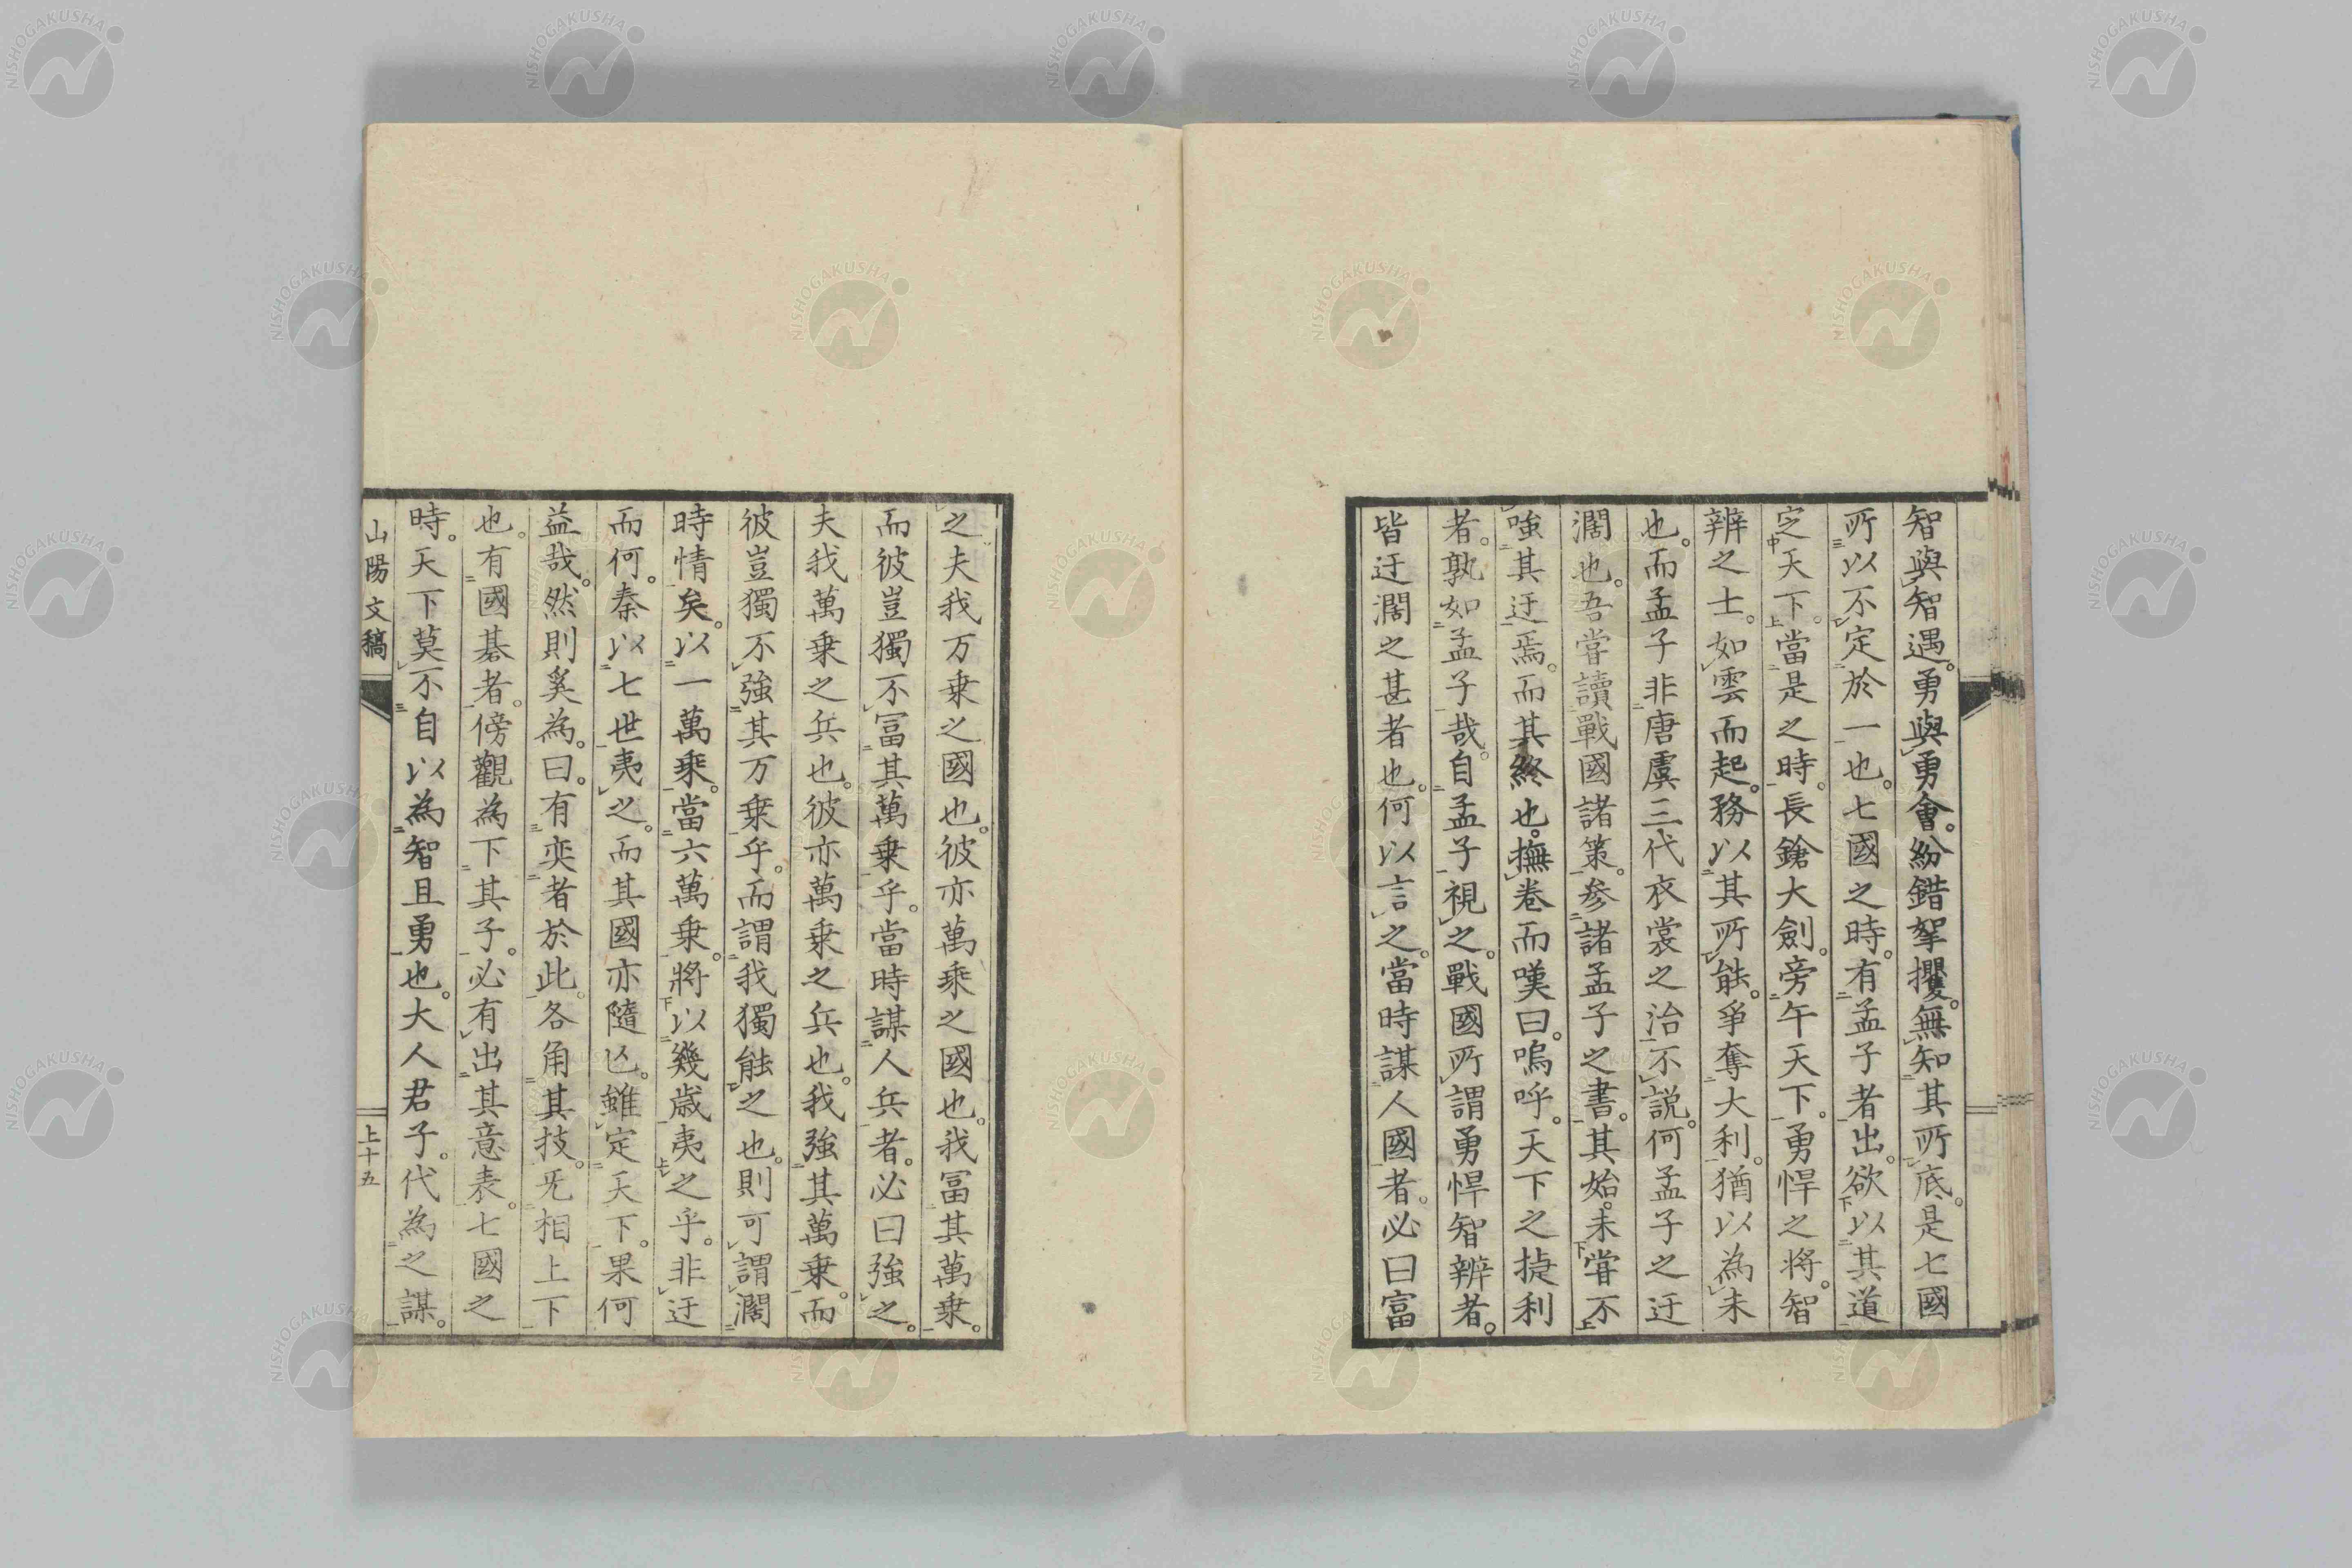 智與智遇。勇與勇會。紛錯拏攫。無知其所底。是七國
所以不定於一也。七國之時。有孟子者出。欲以其道
定天下。當是之時。長鎗大劍。旁午天下。勇悍之將。智
辨之士。如雲而起。務以其所能。爭奪大利。猶以為未
也。而孟子非唐虞三代衣裳之治不說。何孟子之迂
濶也。吾嘗讀戰國諸策。參諸孟子之書。其始。未嘗不
嗤其迂焉。而其終也。撫卷而嘆曰。嗚呼。天下之捷利
者。孰如孟子哉。自孟子視之。戰國所謂勇悍智辨者。
皆迂濶之甚者也。何以言之。當時謀人國者。必曰富
之夫我万乗之國也。彼亦萬乗之國也。我冨其萬乗。
而彼豈獨不冨其萬乗乎。當時謀人兵者。必曰強之。
夫我萬乗之兵也。彼亦萬乗之兵也。我強其萬乗。而
彼豈獨不強其万乗乎。而謂我獨能之也。則可謂濶
時情矣。以一萬乗。當六萬乗。將以幾歳夷之乎。非迂
而何。秦以七世夷之。而其國亦隨亾。雖定天下。果何
益哉。然則奚為。曰。有奕者於此。各角其技。旡相上下
也。有國碁者。傍觀為下其子。必有出其意表。七國之
時。天下莫不自以為智且勇也。大人君子。代為之謀。
山陽文稿
上十五
NISHOGAKUSHA